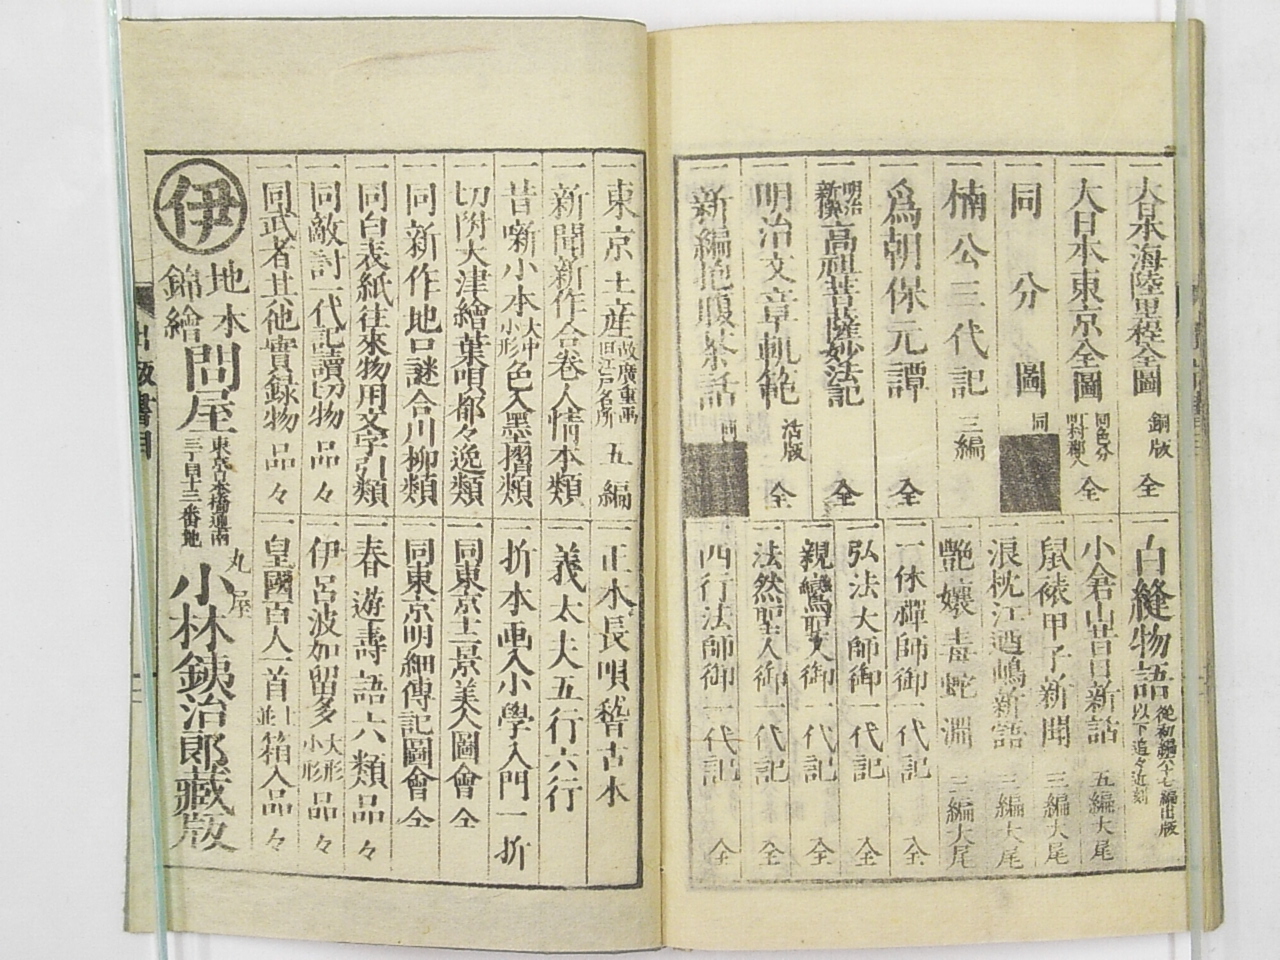 一大日本海陸里程全圖 銅版 全
一大日本東京全圖 同色分 町村郷入 全
一同分圖 同
一楠公三代記 三編
一爲朝保元譚 全
一明治新撰高祖菩薩妙法記 全
一明治文章軌範 活版 全
一新編抱腹茶話 同
一白縫物語 從初編六十七編出版 以下追々近刻
一小倉山昔日新話 五編大尾
一鼠裱甲子新聞 三編大尾
一浪枕江過嶋新語 三編大尾
一艶孃毒蛇淵 三編大尾
一一休禪師御一代記 全
一弘法大師御一代記 全
一親鸞聖人御一代記 全
一法然聖人御一代記 全
一西行法師御一代記 全
一東京土産 故廣重画 旧江戸名所 五編
一新聞新作合巻人情本類
一昔噺小本 大中小形 色入墨摺類
一切附大津繪葉唄都々逸類
一同新作地口謎合川柳類
一同白表紙往來物用文字引類
一同敵討一代記讀切物品々
一同武者其他實録物品々
一正本長唄稽古本
一義太夫五行六行
一折本画入小學入門一折
一同東京十二景美人圖會 全
一同東京明細傳記圖會 全
一春遊壽語六類品々
一伊呂波加留多 大形小形 品々
一皇國百人一首 並上 箱入品々
伊
地本錦繪問屋
東京日本橋通南三丁目十三番地
丸屋
小林鉄治郎藏版
出版書目